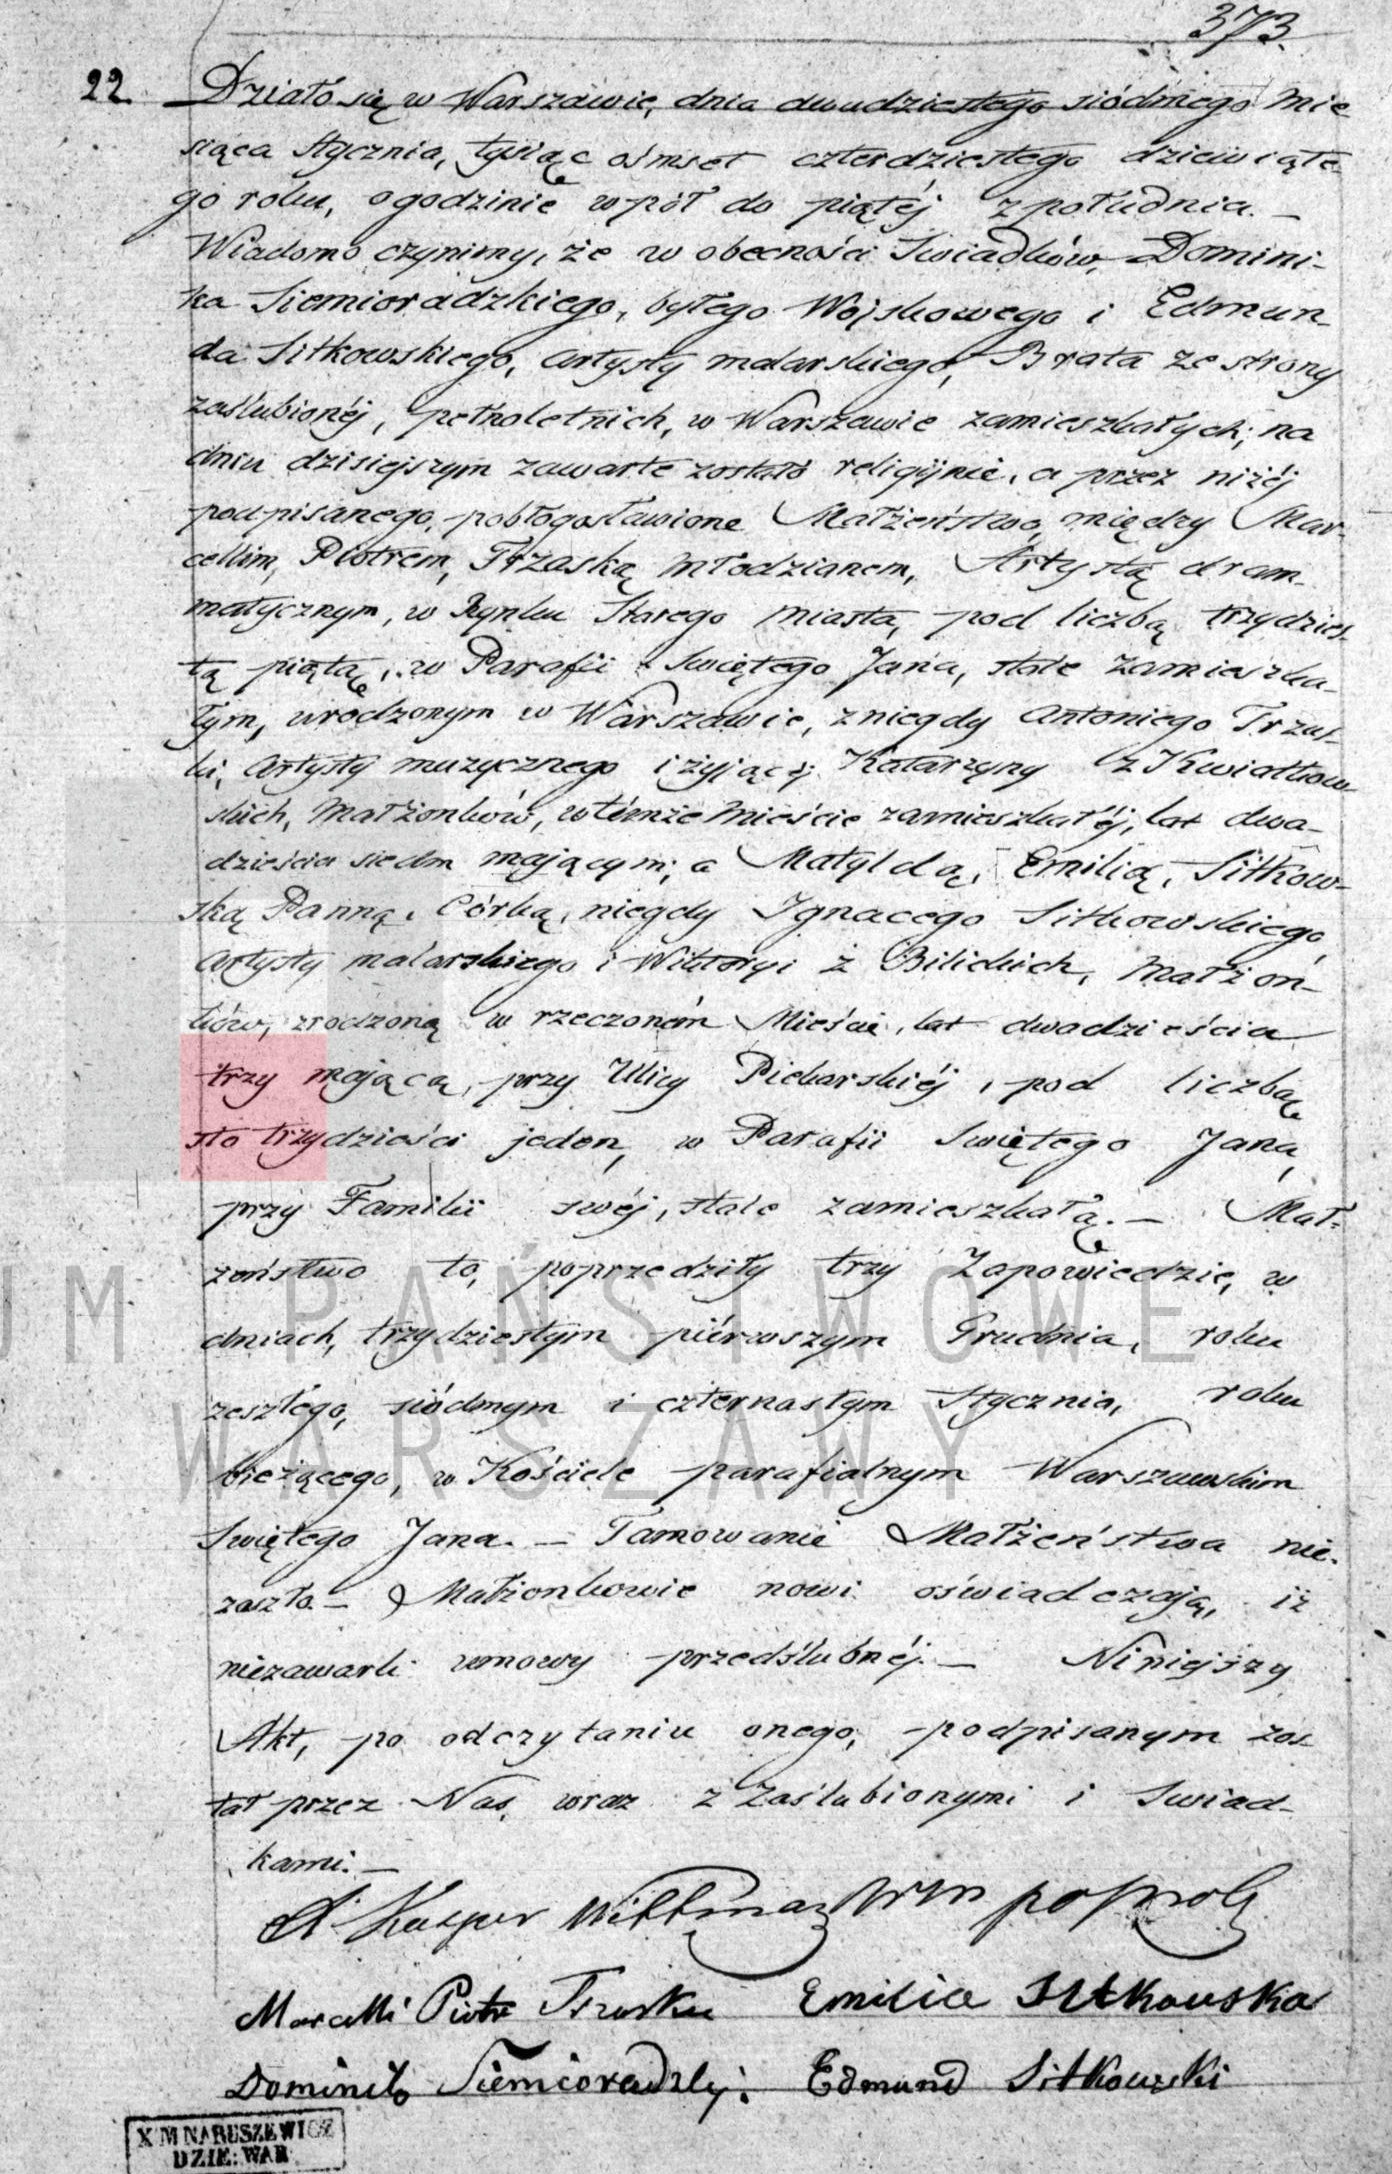 373.
22. Działo się w Warszawie, dnia dwudziestego siódmego Mie
siąca Stycznia, tysiąc ośmset czterdziestego dziewiąte-
go roku, o godzinie wpół do piątéj z południa. —
Wiadomo czynimy, że w obecności Swiadków, Domini-
ka Siemioradzkiego, byłego Wojskowego i Edmun-
da Sitkowskiego, Artysty malarskiego, Brata ze strony
zaślubionéj, pełnoletnich, w Warszawie zamieszkałych; na
dniu dzisiejszym zawarte zostało religijnie, a przez niżéj
podpisanego, pobłogosławione Małżeństwo, między Mar-
cellim, Piotrem, Trzaską Młodzianem, Artystą dram-
matycznym, w Rynku Starego Miasta, pod liczbą trzydzies-
tą piątą, w Parafii Swiętego Jana, stale zamieszka-
łym, urodzonym w Warszawie, z niegdy Antoniego Trzas-
ki, Artysty muzycznego i żyjącéj Katarzyny z Kwiatkow-
skich, Małżonków, w témże Mieście zamieszkałéj, lat dwa-
dzieścia siedm mającym; a Matyldą, Emilią, Sitkow-
ską Panną, Córką, niegdy Ignacego Sitkowskiego
Artysty malarskiego i Wiktoryi z Bilickich, Małżon-
ków, zrodzoną w rzeczoném Mieście, lat dwadzieścia
trzy mającą, przy Ulicy Piekarskiéj, pod liczbą
sto trzydzieści jeden, w Parafii Swiętego Jana,
przy Familii swéj, stale zamieszkałą. — Mał-
żeństwo to, poprzedziły trzy Zapowiedzie, w
dniach, trzydziestym piérwszym Grudnia, roku
zeszłego, siódmym i czternastym Stycznia, roku
bieżącego, w Kościele parafialnym Warszawskim
Swiętego Jana. — Tamowanie Małżeństwa nie-
zaszło. — Małżonkowie nowi oświadczają, iż
niezawarli umowy przedślubnéj. — Niniejszy
Akt, po odczytaniu onego, podpisanym zos-
tał przez Nas, wraz z Zaślubionymi i Swiad-
kami. —
X Kasper
Marcelli Piotr Trzaska Emilia Sitkowska
Dominik Siemioradzky: Edmund Sitkowski
X M NARUSZEWICZ
DZIE: WAR
UM PAŃSTWOWE
WARSZAWY